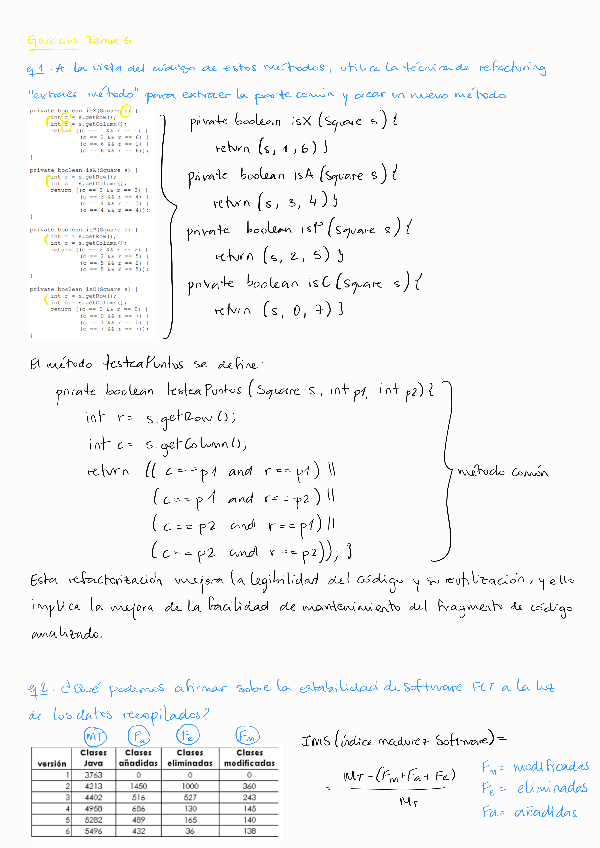 Gaciant Tema 5
ej 1. A la vista del código de estos métodos, utilice la técnica de refactoring
"extraer método" para extraer la parte común y crear un nuevo método
private boolean isX(Square s) {
int r = s.getRow();
int c = s.getColumn();
return ((c == 1 && r == 1) ||
(c == 1 && r == 6) ||
(c == 6 && r == 1) ||
(c == 6 && r == 6));
}
private boolean isA(Square s) {
int r = s.getRow();
int c = s.getColumn();
return ((c == 3 && r == 3) ||
(c == 3 && r == 4) ||
(c == 4 && r == 3) ||
(c == 4 && r == 4));
}
private boolean isP(Square s) {
int r = s.getRow();
int c = s.getColumn();
return ((c == 2 && r == 2) ||
(c == 2 && r == 5) ||
(c == 5 && r == 2) ||
(c == 5 && r == 5));
}
private boolean isC(Square s) {
int r = s.getRow();
int c = s.getColumn();
return ((c == 0 && r == 0) ||
(c == 0 && r == 7) ||
(c == 7 && r == 0) ||
(c == 7 && r == 7));
}
private boolean isX (Square s) {
return (s, 1, 6) }
private boolean isA (Square s) {
return (s, 3, 4) }
private boolean isP (Square s) {
return (s, 2, 5) }
private boolean isC (Square s) {
return (s, 0, 7) }
El método testeaPuntos se define:
private boolean testeaPuntos (Square s, int p1, int p2) {
int r = s.getRow();
int c = s.getColumn();
return (( c == p1 and r == p1) ||
(c == p1 and r == p2) ||
(c == p2 and r == p1) ||
(c == p2 and r == p2)); }
método común
Esta refactorización mejora la legibilidad del código y su reutilización, y ello
implica la mejora de la facilidad de mantenimiento del fragmento de código
analizado.
ej 2. ¿Qué podemos afirmar sobre la estabilidad de Software FCT a la luz
de los datos recopilados?
MT Fa Fe Fm
versión Clases Java Clases añadidas Clases eliminadas Clases modificadas
1 3763 0 0 0
2 4213 1450 1000 360
3 4402 516 527 243
4 4958 686 130 145
5 5282 489 165 140
6 5496 432 36 138
IMS (índice madurez Software) =
= MT - (Fm + Fa + Fe)
MT
Fm = modificadas
Fe = eliminadas
Fa = añadidas